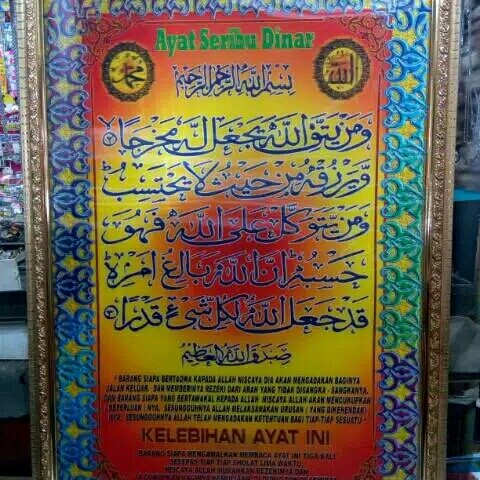 Ayat Seribu Dinar
الله
محمد
بسم الله الرحمن الرحيم
ومن يتق الله يجعل له مخرجا ٢
ويرزقه من حيث لا يحتسب
ومن يتوكل على الله فهو
حسبه إن الله بالغ أمره
قد جعل الله لكل شيء قدرا ٣
صدق الله العظيم
" BARANG SIAPA BERTAQWA KAPADA ALLAH NISCAYA DIA AKAN MENGADAKAN BAGINYA
JALAN KELUAR. DAN MEMBERINYA REZEKI DARI ARAH YANG TIDAK DISANGKA - SANGKANYA.
DAN BARANG SIAPA YANG BERTAWAKAL KEPADA ALLAH NISCAYA ALLAH AKAN MENCUKUPKAN
KEPERLUAN - NYA. SESUNGGUHNYA ALLAH MELAKSANAKAN URUSAN ( YANG DIKEHENDAKI
NYA. SESUNGGUHNYA ALLAH TELAH MENGADAKAN KETENTUAN BAGI TIAP-TIAP SESUATU "
KELEBIHAN AYAT INI
BARANG SIAPA MENGAMALKAN MEMBACA AYAT INI TIGA KALI
SELEPAS TIAP TIAP SHOLAT LIMA WAKTU,
NISCAYA ALLAH MURAHKAN REZEKINYA DAN